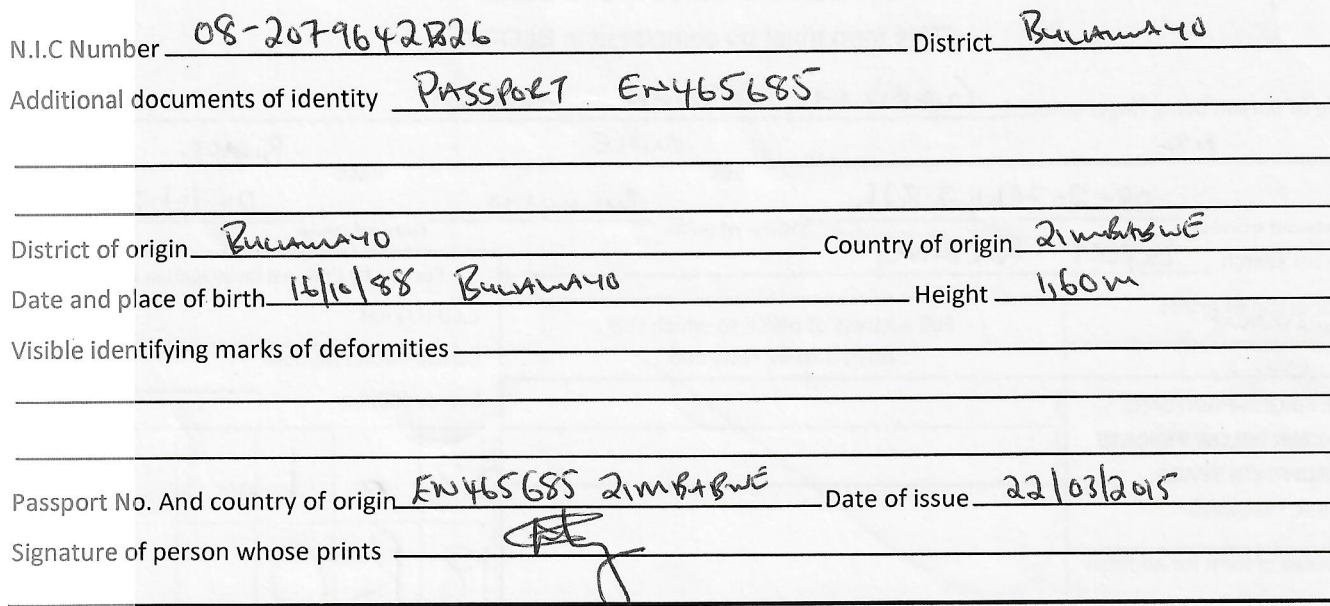 N.I.C Number 08-2079642B26 District BULAWAYO
Additional documents of identity PASSPORT EN465685
District of origin BULAWAYO Country of origin ZIMBABWE
Date and place of birth 16/10/88 BULAWAYO Height 1,60m
Visible identifying marks of deformities
Passport No. And country of origin EN465685 ZIMBABWE Date of issue 22/03/2015
Signature of person whose prints